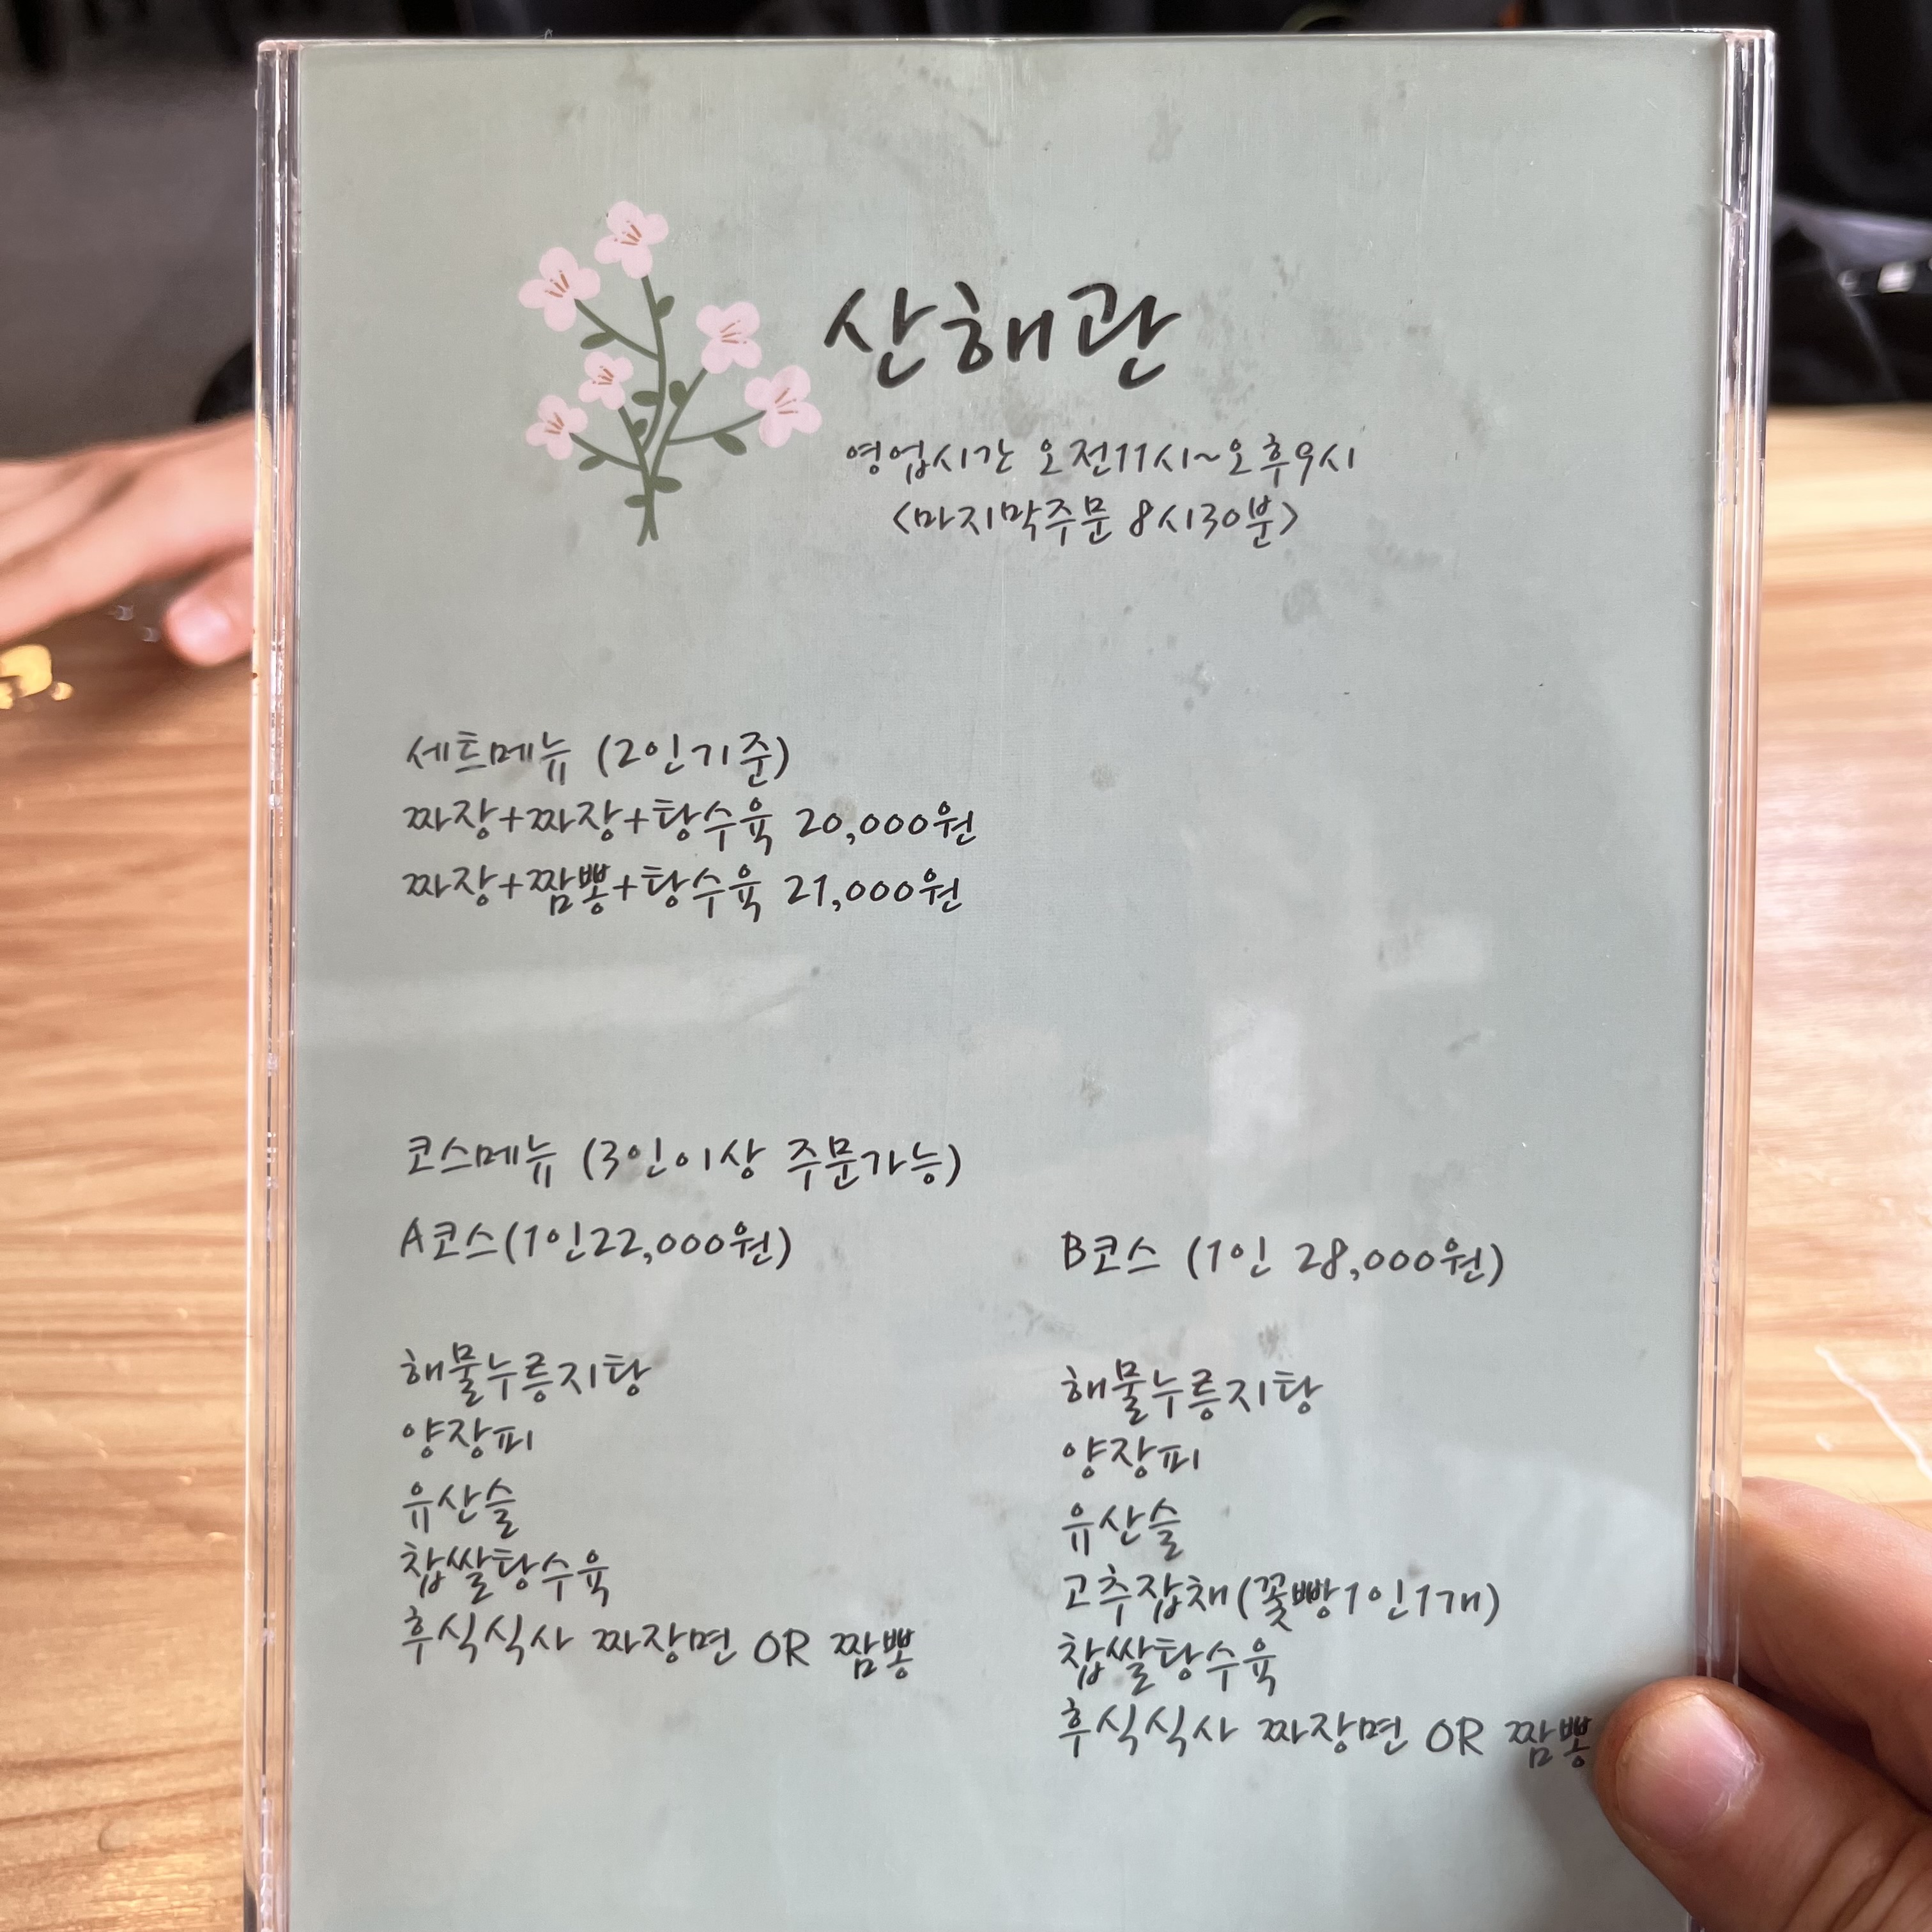 산해관
영업시간 오전11시~오후9시
<마지막주문 8시30분>
세트메뉴 (2인기준)
짜장+짜장+탕수육 20,000원
짜장+짬뽕+탕수육 21,000원
코스메뉴 (3인이상 주문가능)
A코스(1인22,000원)
해물누릉지탕
양장피
유산슬
찹쌀탕수육
후식식사 짜장면 OR 짬뽕
B코스 (1인 28,000원)
해물누릉지탕
양장피
유산슬
고추잡채(꽃빵1인1개)
찹쌀탕수육
후식식사 짜장면 OR 짬뽕